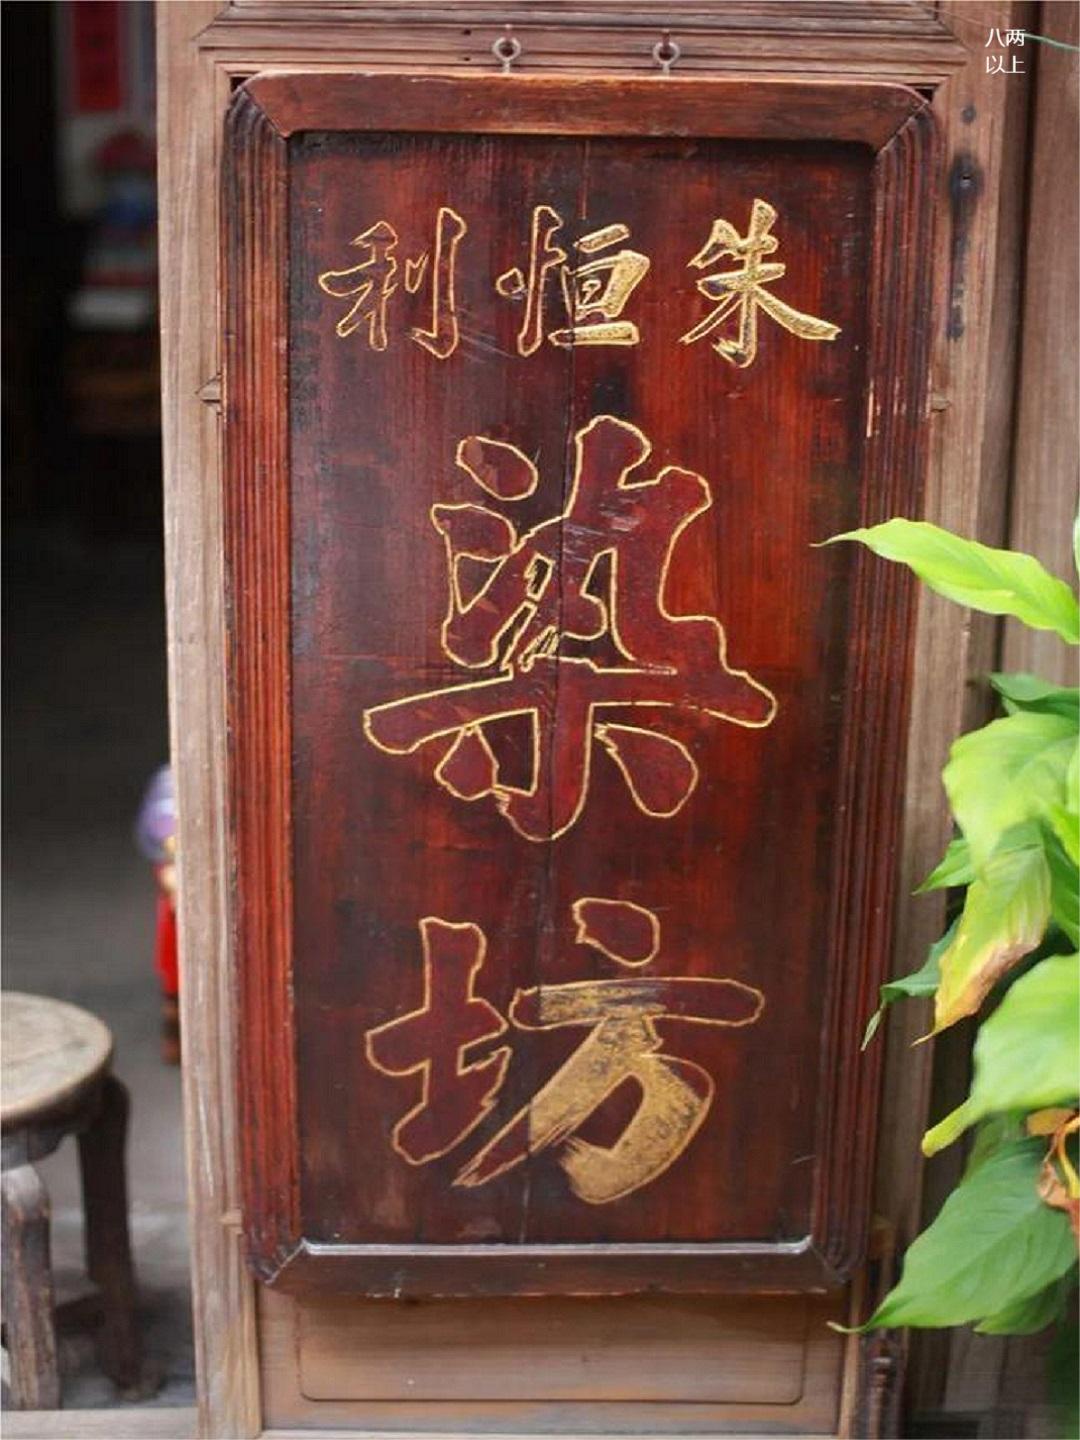 八两
以上
朱恒利
染坊